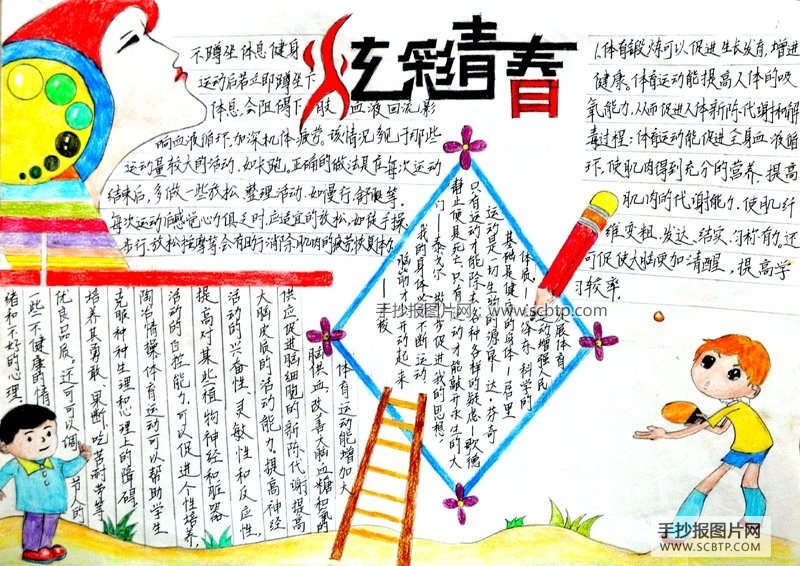 炫彩青春
不蹲坐休息健身
运动后若立即蹲坐下
休息,会阻碍下肢血液回流,影
响血液循环,加深机体疲劳。该情况多见于那些
运动量较大的活动,如长跑。正确的做法是在每次运动
结束后,多做一些放松、整理活动,如慢行、舒展等。
每次运动后感觉心力俱乏时,应适宜的放松,如徒手操、
步行、放松按摩等会有助于消除肌肉的疲劳恢复体力
人体育锻炼可以促进生长发育,增进
健康。体育运动能提高人体的吸
氧能力,从而促进人体新陈代谢和解
毒过程;体育运动能促进全身血液循
环,使肌肉得到充分的营养,提高
肌肉的代谢能力,使肌纤
维变粗、发达、结实、匀称有力。还
可促使大脑更加清醒,提高学
习效率。
发展体育运动增强人民
体质——毛泽东 科学的
基础是健康的身体——居里
运动是一切生物的源泉——达·芬奇
只有运动才能除去各种各样的疑虑——歌德
静止便是死亡,只有运动才能敲开永生的大
门——泰戈尔 散步促进我的思想
我的身体必须不断运动
脑筋才会开动起来
体育运动能增加大
脑供血,改善大脑血糖和氧的
供应,促进脑细胞的新陈代谢,提高
大脑皮质的活动能力。提高神经
活动的兴奋性、灵敏性和反应性,
提高对某些植物神经和脏器
活动的自控能力。可以促进个性培养,
陶冶情操,体育运动可以帮助学生
克服种种生理和心理上的障碍,
培养其勇敢、果断、吃苦耐劳等
优良品质。还可以调节人的
一些不健康的情
绪和不好的心理。
手抄报图片网:www.scbtp.com
手抄报图片网
WWW.SCBTP.COM